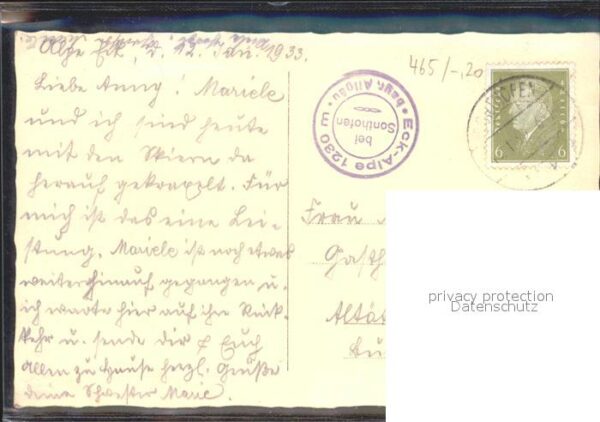 Alpe Eck, d. 12. Jan. 1933.
Liebe Anny! Mariele
und ich sind heute
mit den Skiern da
herauf gekrapelt. Für
mich ist das eine Lei-
stung. Mariele ist noch etwas
weiter hinauf gegangen u.
ich warte hier auf ihre Rück-
kehr u. sende dir & Euch
allen zu Hause herzl. Grüße
deine Schwester Marie.
465/-,20
Eck-Alpe 1280 m
bayr. Allgäu
bei
Sonthofen
DEUTSCHES REICH
6 6
Frau
Gasth
Altst
privacy protection
Datenschutz